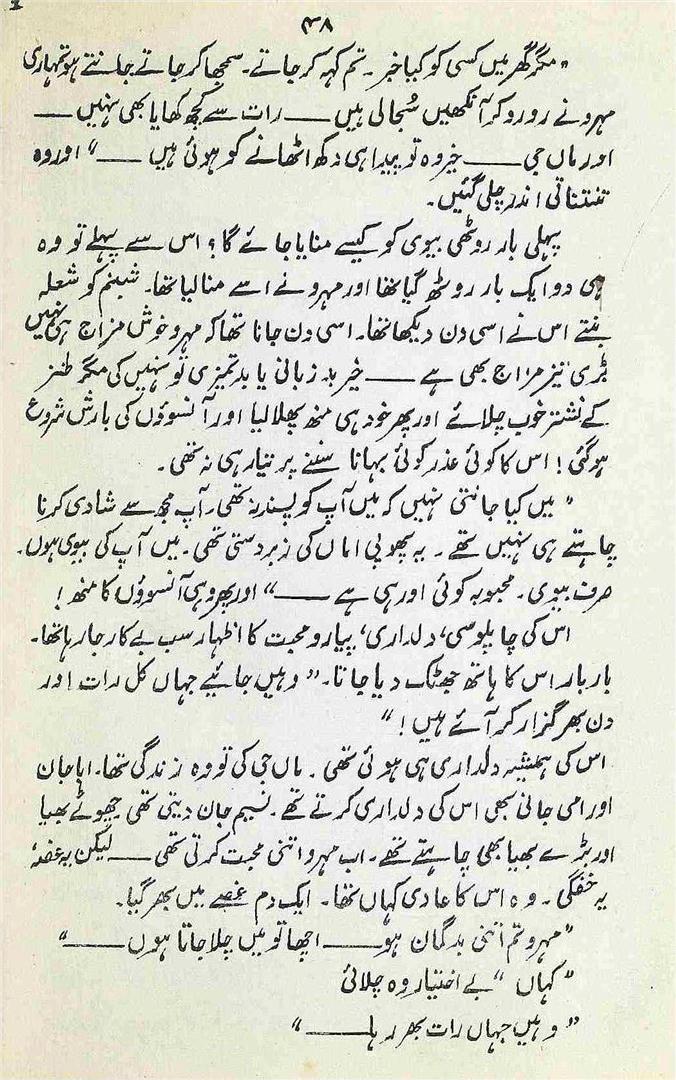 ۴۸
"مگر گھر میں کسی کو کیا خبر۔ تم کہہ کر جاتے۔ سمجھا کر جاتے جانتے ہو تمہاری
مہرو نے رو رو کر آنکھیں سُجالی ہیں —— رات سے کچھ کھایا بھی نہیں ——
اور ماں جی —— خیر وہ تو پیدا ہی دکھ اٹھانے کو ہوئی ہیں ——" اور وہ
تنتناتی اندر چلی گئیں۔
پہلی بار روٹھی بیوی کو کیسے منایا جائے گا؟ اس سے پہلے تو وہ
ہی دو ایک بار روٹھ گیا تھا اور مہرو نے اسے منالیا تھا۔ شبنم کو شعلہ
بنتے اس نے اسی دن دیکھا تھا۔ اسی دن جانا تھا کہ مہرو خوش مزاج ہی نہیں
بڑی تیز مزاج بھی ہے —— خیر بد زبانی یا بدتمیزی تو نہیں کی مگر طنز
کے نشتر خوب چلائے اور پھر خود ہی منھ پھلا لیا اور آنسوؤں کی بارش شروع
ہو گئی! اس کا کوئی عذر کوئی بہانا سننے پر تیار ہی نہ تھی۔
"میں کیا جانتی نہیں کہ میں آپ کو پسند نہ تھی۔ آپ مجھ سے شادی کرنا
چاہتے ہی نہیں تھے۔ یہ پھوپی اماں کی زبردستی تھی۔ میں آپ کی بیوی ہوں۔
صرف بیوی۔ محبوبہ کوئی اور ہی ہے ——" اور پھر وہی آنسوؤں کا منھ!
اس کی چاپلوسی، دلداری، پیار و محبت کا اظہار سب بے کار جا رہا تھا۔
بار بار اس کا ہاتھ جھٹک دیا جاتا۔ "وہیں جائیے جہاں کل رات اور
دن بھر گزار کر آئے ہیں!"
اس کی ہمیشہ دلداری ہی ہوئی تھی۔ ماں جی کی تو وہ زندگی تھا۔ ابا جان
اور امی جانی بھی اس کی دلداری کرتے تھے۔ نسیم جان دیتی تھی چھوٹے بھیا
اور بڑے بھیا بھی چاہتے تھے۔ اب مہرو اتنی محبت کرتی تھی —— لیکن یہ غصہ،
یہ خفگی۔ وہ اس کا عادی کہاں تھا۔ ایک دم غصے میں بھر گیا۔
"مہرو تم اتنی بدگمان ہو —— اچھا تو میں چلا جاتا ہوں ——"
"کہاں" بے اختیار وہ چلائی
"وہیں جہاں رات بھر رہا ——"